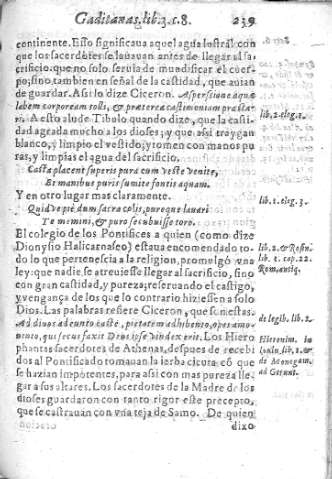 Gaditanas. lib. 3. c. 8. 239
continente. Esso significaua aquel agua lustral con
que los sacerdotes se lauauan antes de llegar al sa-
crificio. que no solo seruia de mundificar el cuer-
po, sino tambien en señal de la castidad, que auian
de guardar. Assi lo dize Ciceron. Aspersione aquæ
labem corpoream tolli, & præterea castimoniam præsta-
ri. A esto alude Tibulo quando dize, que la casti-
dad agrada mucho a los dioses; y que assi traygan
blanco, y limpio el vestido; y tomen con manos pu
ras, y limpias el agua del sacrificio.
Casta placent superis pura cum veste venite,
Et manibus puris sumite fontis aquam.
Y en otro lugar mas claramente.
Quid ve piè dum sacra colis, pureque lauari
Te memini, & puro secubuisse toro.
El colegio de los Pontifices a quien (como dize
Dionysio Halicarnaseo) estaua encomendado to-
do lo que pertenescia a la religion, promulgò vna
ley: que nadie se atreuiesse llegar al sacrificio, sino
con gran castidad, y pureza; reseruando el castigo,
y vengança de los que lo contrario hiziessen a solo
Dios. Las palabras refiere Ciceron, que son estas.
Ad diuos adeunto castè, pietatem adhibento, opes amo-
uento, qui secus faxit Deus ipse vindex erit. Los Hiero
phantas sacerdotes de Athenas, despues de recebi
dos al Pontificado tomauan la ierba cicuta cõ que
se hazian impotentes, para assi con mas pureza lle-
gar a sus altares. Los sacerdotes de la Madre de los
dioses guardaron con tanto rigor este precepto,
que se castrauan con vna teja de Samo. De quien
dixo
lib. 2. eleg. 1.
lib. 1. eleg. 3.
lib. 2. & Rosin.
lib. 1. cap. 22.
Romantiq.
de legib. lib. 2.
Hieronim. in
lib. 1. &
de Monogam.
ad Geront.